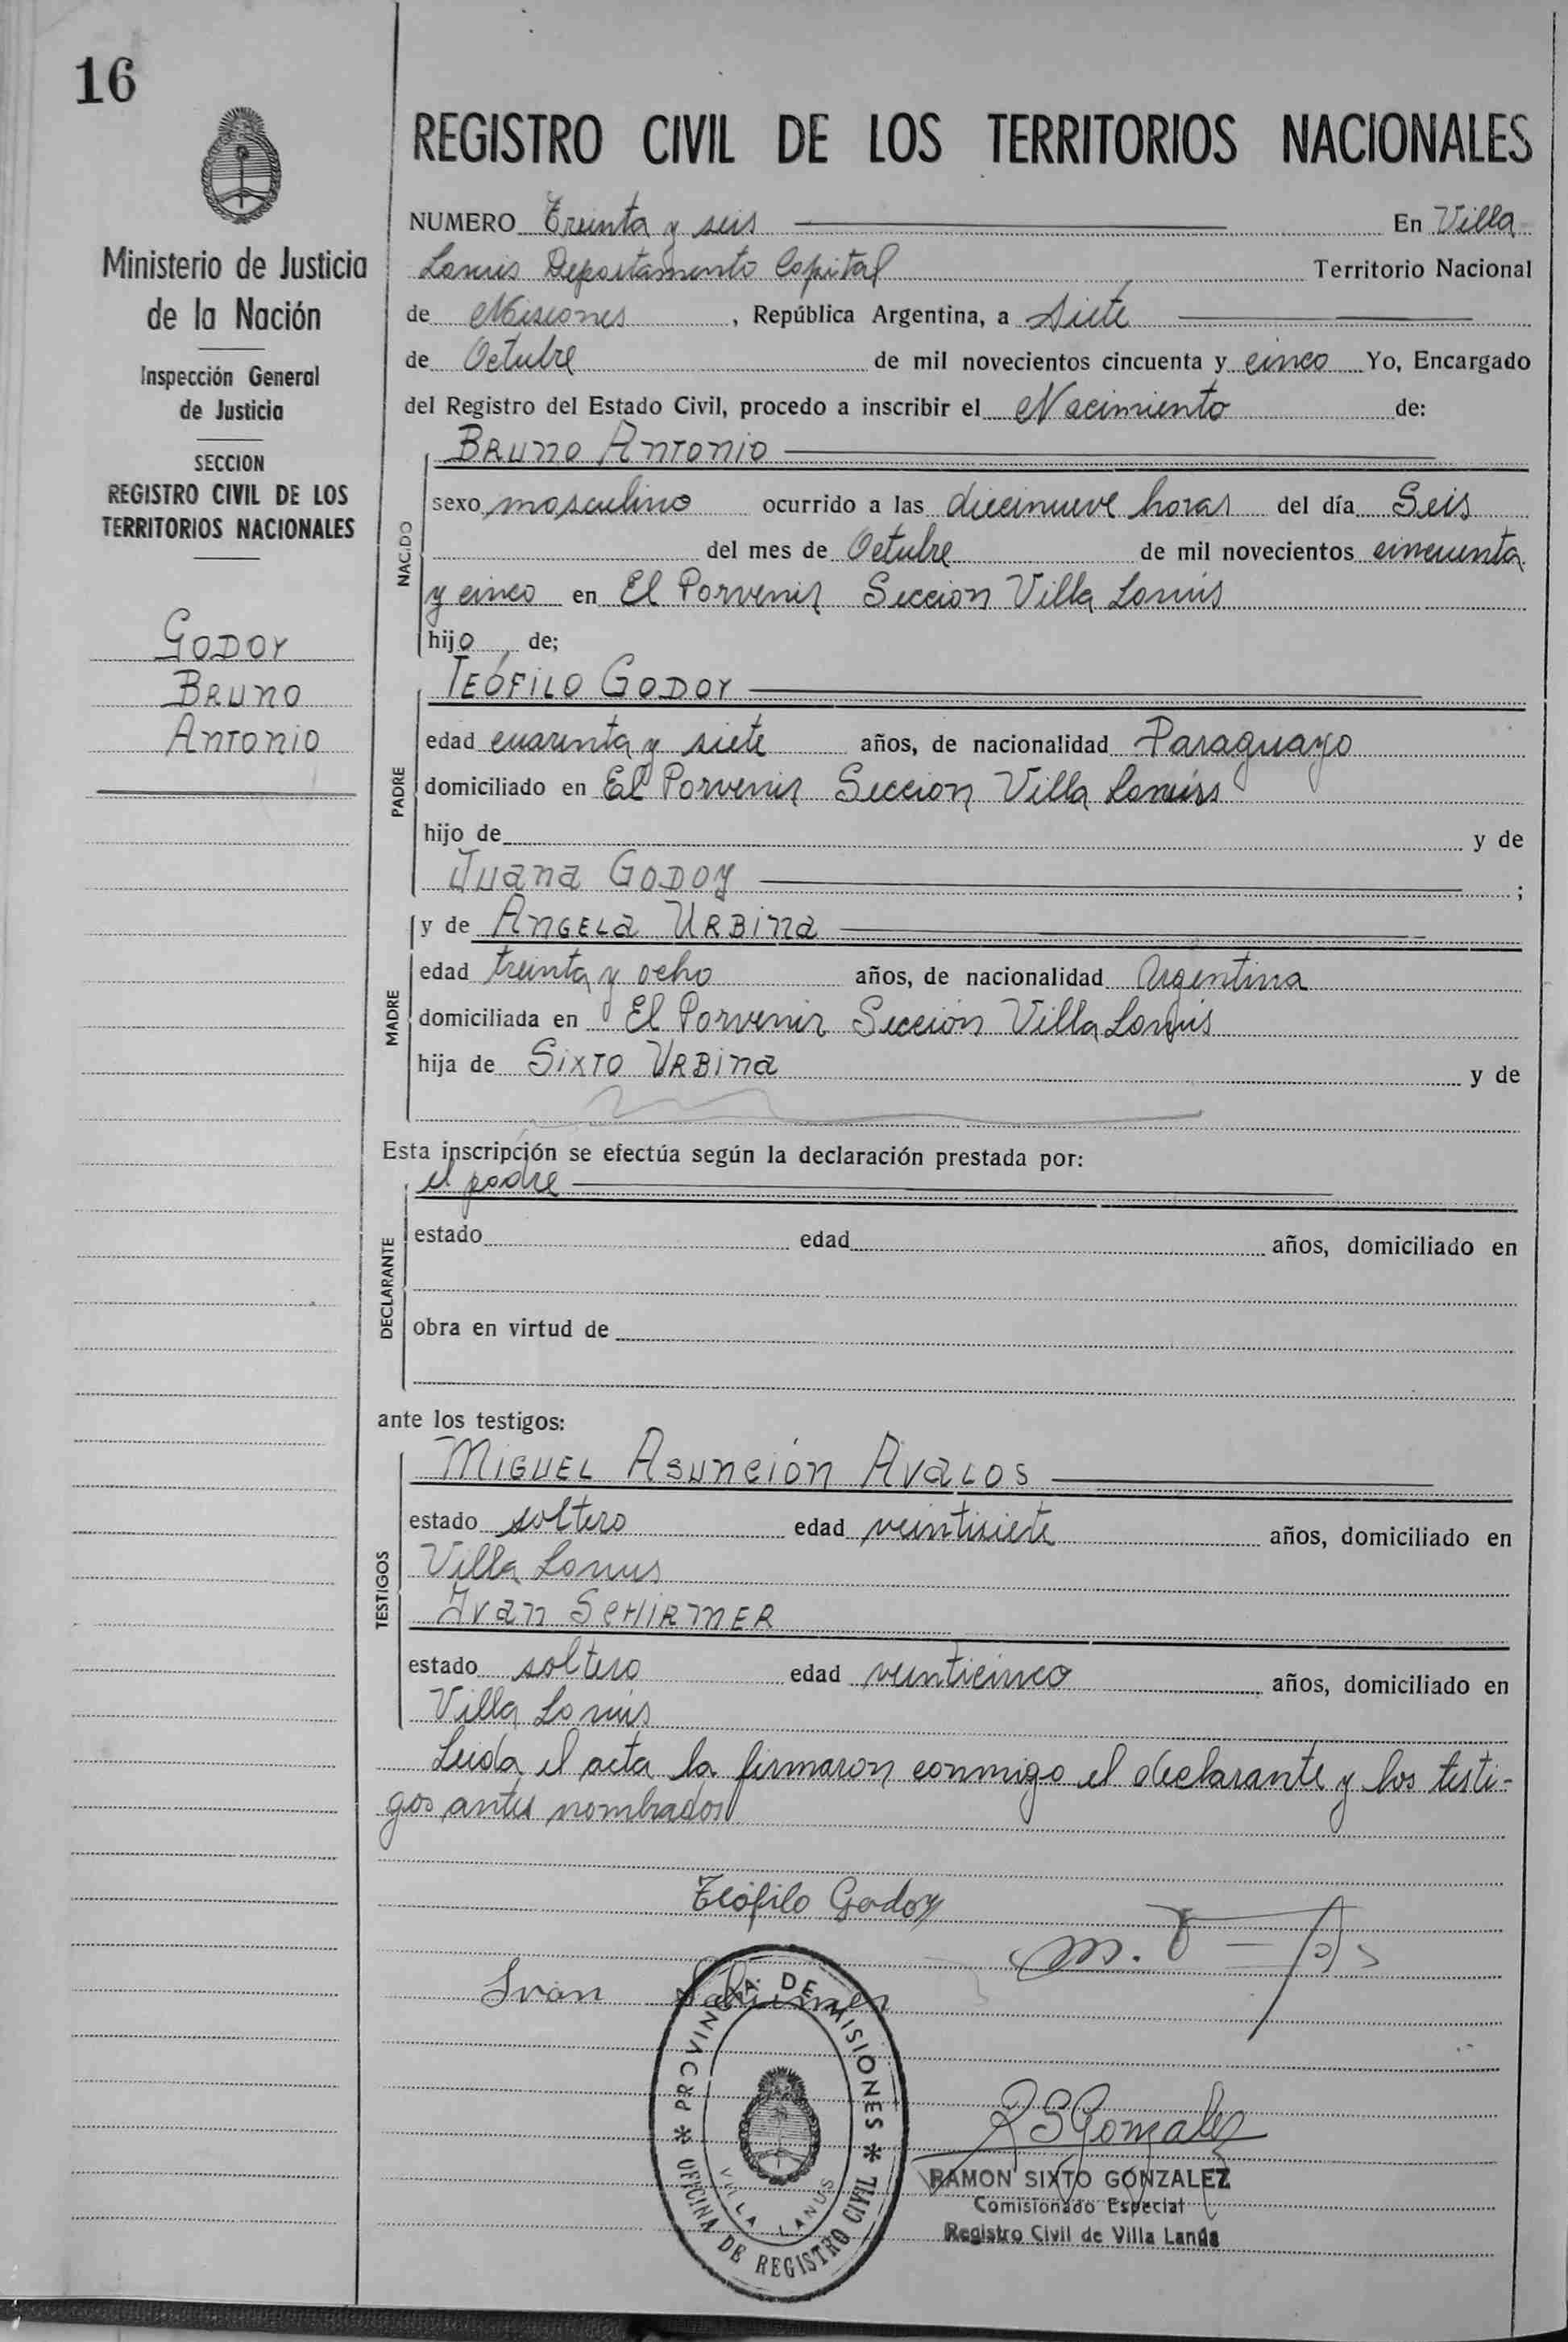 16
Ministerio de Justicia
de la Nación
Inspección General
de Justicia
SECCION
REGISTRO CIVIL DE LOS
TERRITORIOS NACIONALES
GODOY
BRUNO
ANTONIO
REGISTRO CIVIL DE LOS TERRITORIOS NACIONALES
NUMERO Treinta y seis En Villa
Lanús Departamento Capital Territorio Nacional
de Misiones, República Argentina, a Siete
de Octubre de mil novecientos cincuenta y cinco Yo, Encargado
del Registro del Estado Civil, procedo a inscribir el Nacimiento de:
NACIDO
BRUNO ANTONIO
sexo masculino ocurrido a las diecinueve horas del día Seis
del mes de Octubre de mil novecientos cincuenta
y cinco en El Porvenir Sección Villa Lanús
hijo de;
PADRE
TEÓFILO GODOY
edad cuarenta y siete años, de nacionalidad Paraguayo
domiciliado en El Porvenir Sección Villa Lanús
hijo de y de
JUANA GODOY ;
MADRE
y de ANGELA URBINA
edad treinta y ocho años, de nacionalidad Argentina
domiciliada en El Porvenir Sección Villa Lanús
hija de SIXTO URBINA y de
Esta inscripción se efectúa según la declaración prestada por:
DECLARANTE
el padre
estado edad años, domiciliado en
obra en virtud de
ante los testigos:
TESTIGOS
MIGUEL ASUNCIÓN AVALOS
estado soltero edad veintisiete años, domiciliado en
Villa Lanus
IVAN SCHIRMER
estado soltero edad veinticinco años, domiciliado en
Villa Lanús
Leida el acta la firmaron conmigo el declarante y los testi-
gos antes nombrados
Teófilo Godoy
Ivan Schirmer
PROVINCIA DE MISIONES
VILLA LANUS
OFICINA DE REGISTRO CIVIL
R S Gonzalez
RAMON SIXTO GONZALEZ
Comisionado Especial
Registro Civil de Villa Lanús